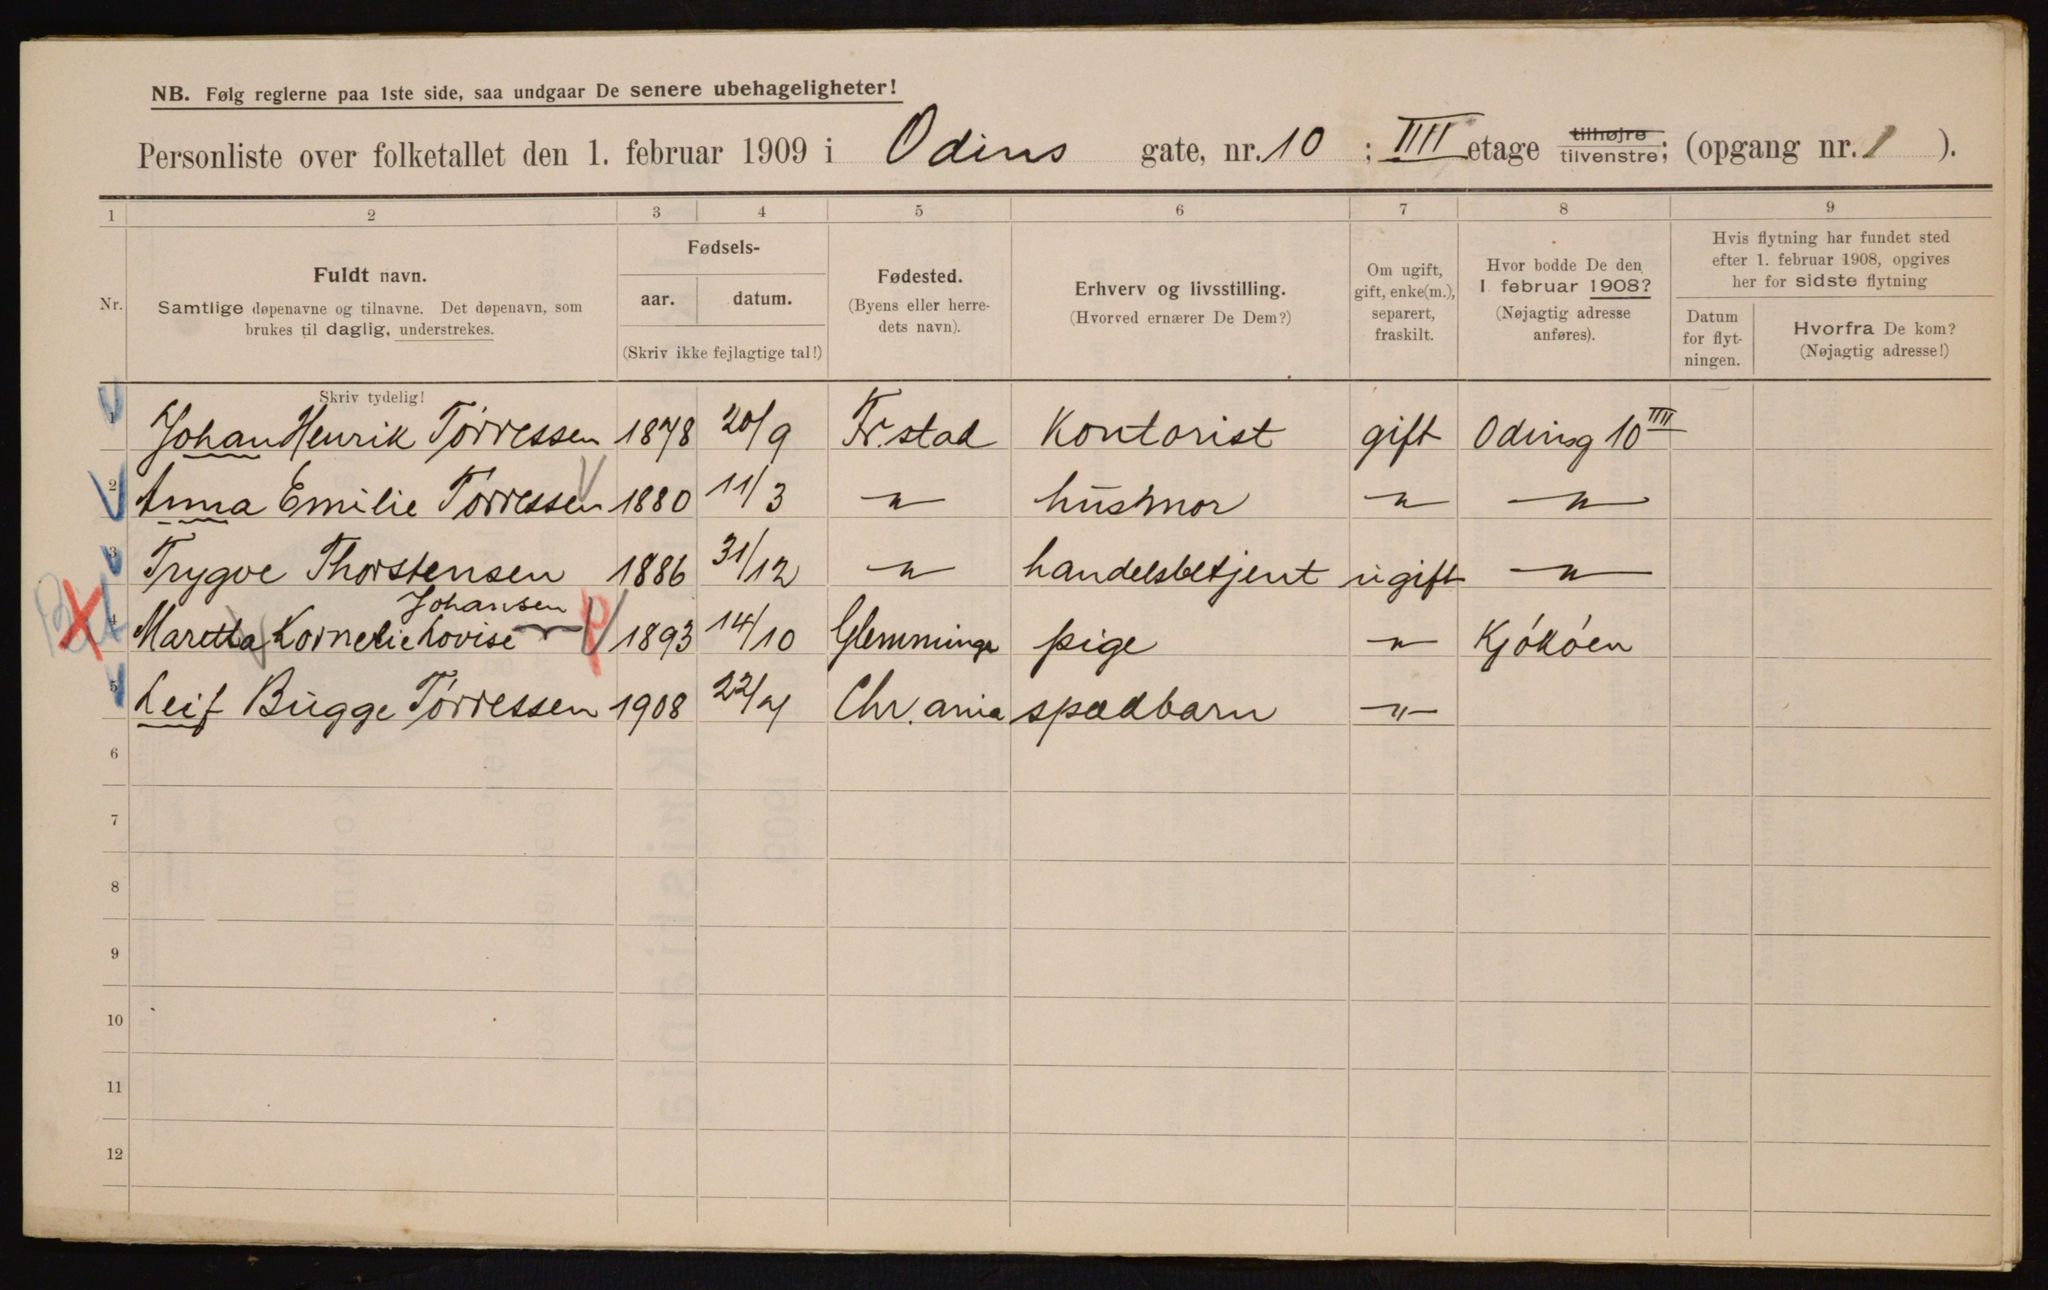 NB. Følg reglerne paa 1ste side, saa undgaar De senere ubehageligheter!
Personliste over folketallet den 1. februar 1909 i Odins gate, nr. 10 ; IIII etage tilhøjre tilvenstre; (opgang nr. 1 ).
1 2 3 4 5 6 7 8 9
Nr.
Fuldt navn.
Samtlige døpenavne og tilnavne. Det døpenavn, som
brukes til daglig, understrekes.
Fødsels-
aar. datum.
(Skriv ikke fejlagtige tal!)
Fødested.
(Byens eller herre-
dets navn).
Erhverv og livsstilling.
(Hvorved ernærer De Dem?)
Om ugift,
gift, enke(m.),
separert,
fraskilt.
Hvor bodde De den
1 februar 1908?
(Nøjagtig adresse
anføres).
Hvis flytning har fundet sted
efter 1. februar 1908, opgives
her for sidste flytning
Datum
for flyt-
ningen.
Hvorfra De kom?
(Nøjagtig adresse!)
Skriv tydelig!
1 Johan Henrik Tórressen 1878 20/9 Fr.stad Kontorist gift Odinsg 10 IIII
2 Anna Emilie Torressen 1880 11/3 — " — husmor — " — — " —
3 Trygve Thorstensen 1886 31/12 — " — handelsbetjent ugift — " —
Johansen
4 Maretta Kornelie Lovise 1893 14/10 Glemminge pige — " — Kjókóen
5 Leif Bugge Tórressen 1908 22/4 Chr.ania spædbarn — " —
6
7
8
9
10
11
12